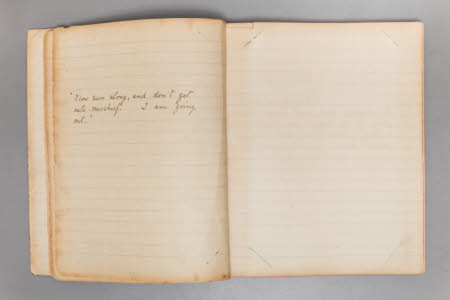 "Now run along, and don't get
into mischief. I am going
out."